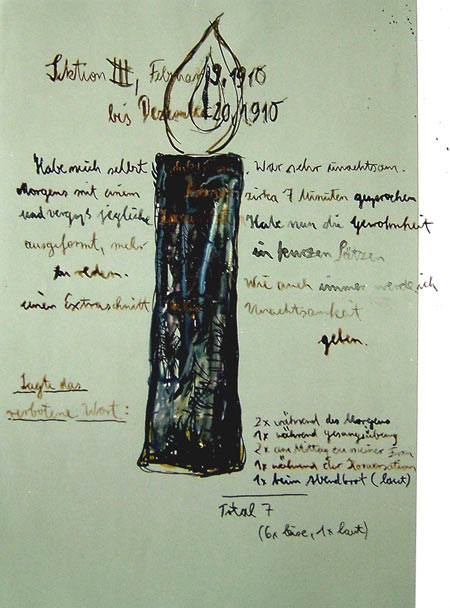 Sektion III, Februar 9, 1910
bis Dezember 20, 1910
Habe mich selbst War sehr unachtsam.
Morgens mit einem zirka 7 Minuten gesprochen
und vergass jegliche Habe nun die Gewohnheit
ausgeformt, mehr in kurzen Sätzen
zu reden. Wie auch immer werde ich
einen Extraschnitt Unachtsamkeit
geben.
Sagte das
verbotene Wort:
2x während des Morgens
1x während Gesangsübung
2x am Mittag zu meiner Frau
1x während der Konversation
1x beim Abendbrot (laut)
Total 7
(6x leise, 1x laut)